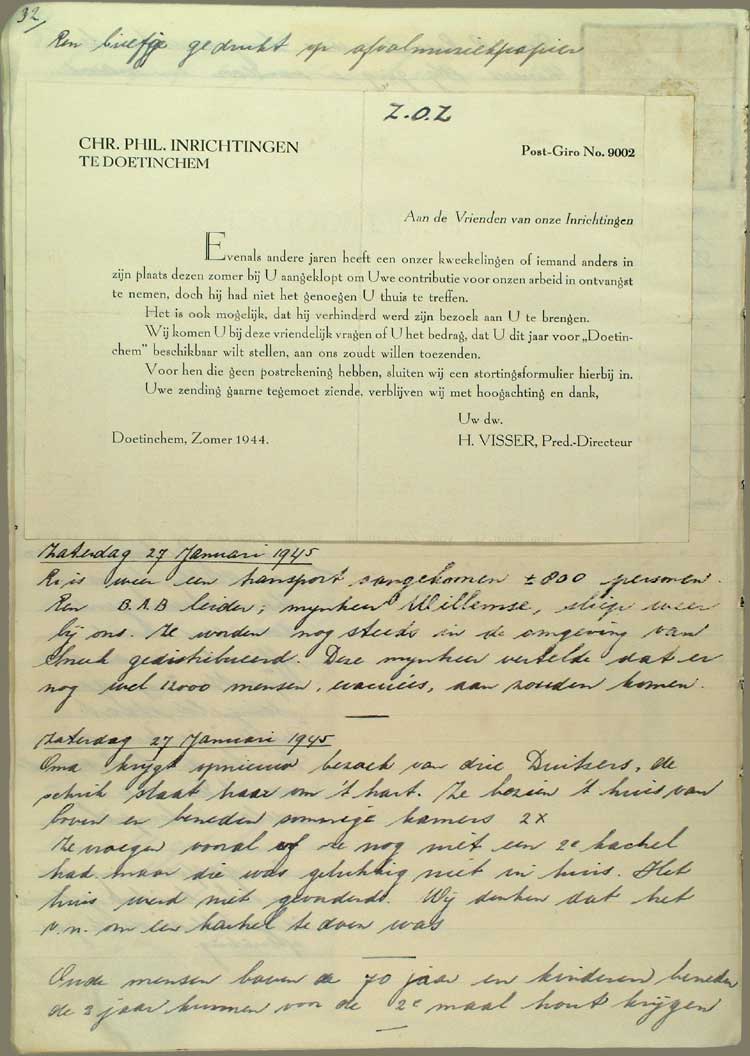 32/
Een briefje gedrukt op afvalmuziekpapier
Z.O.Z
CHR. PHIL. INRICHTINGEN
TE DOETINCHEM
Post-Giro No. 9002
Aan de Vrienden van onze Inrichtingen
Evenals andere jaren heeft een onzer kweekelingen of iemand anders in
zijn plaats dezen zomer bij U aangeklopt om Uwe contributie voor onzen arbeid in ontvangst
te nemen, doch hij had niet het genoegen U thuis te treffen.
Het is ook mogelijk, dat hij verhinderd werd zijn bezoek aan U te brengen.
Wij komen U bij deze vriendelijk vragen of U het bedrag, dat U dit jaar voor „Doetin-
chem" beschikbaar wilt stellen, aan ons zoudt willen toezenden.
Voor hen die geen postrekening hebben, sluiten wij een stortingsformulier hierbij in.
Uwe zending gaarne tegemoet ziende, verblijven wij met hoogachting en dank,
Uw dw.
Doetinchem, Zomer 1944.
H. VISSER, Pred.-Directeur
Zaterdag 27 Januari 1945
Er is weer een transport aangekomen ± 800 personen.
Een B.A.B leider, mynheer Willemse, sliep weer
bij ons. Ze worden nog steeds in de omgeving van
Sneek gedistribueerd. Deze mynheer vertelde dat er
nog wel 12000 mensen, evacués, aan zouden komen.
Zaterdag 27 Januari 1945
Oma krijgt opnieuw bezoek van drie Duitsers, de
schrik slaat haar om 't hart. Ze bezien 't huis van
boven en beneden sommige kamers 2x
Ze vroegen vooral of ze nog niet een 2e kachel
had maar die was gelukkig niet in huis. Het
huis werd niet gevorderd. Wij denken dat het
v.n. om een kachel te doen was
Oude mensen boven de 70 jaar en kinderen beneden
de 3 jaar kunnen voor de 2e maal hout krijgen